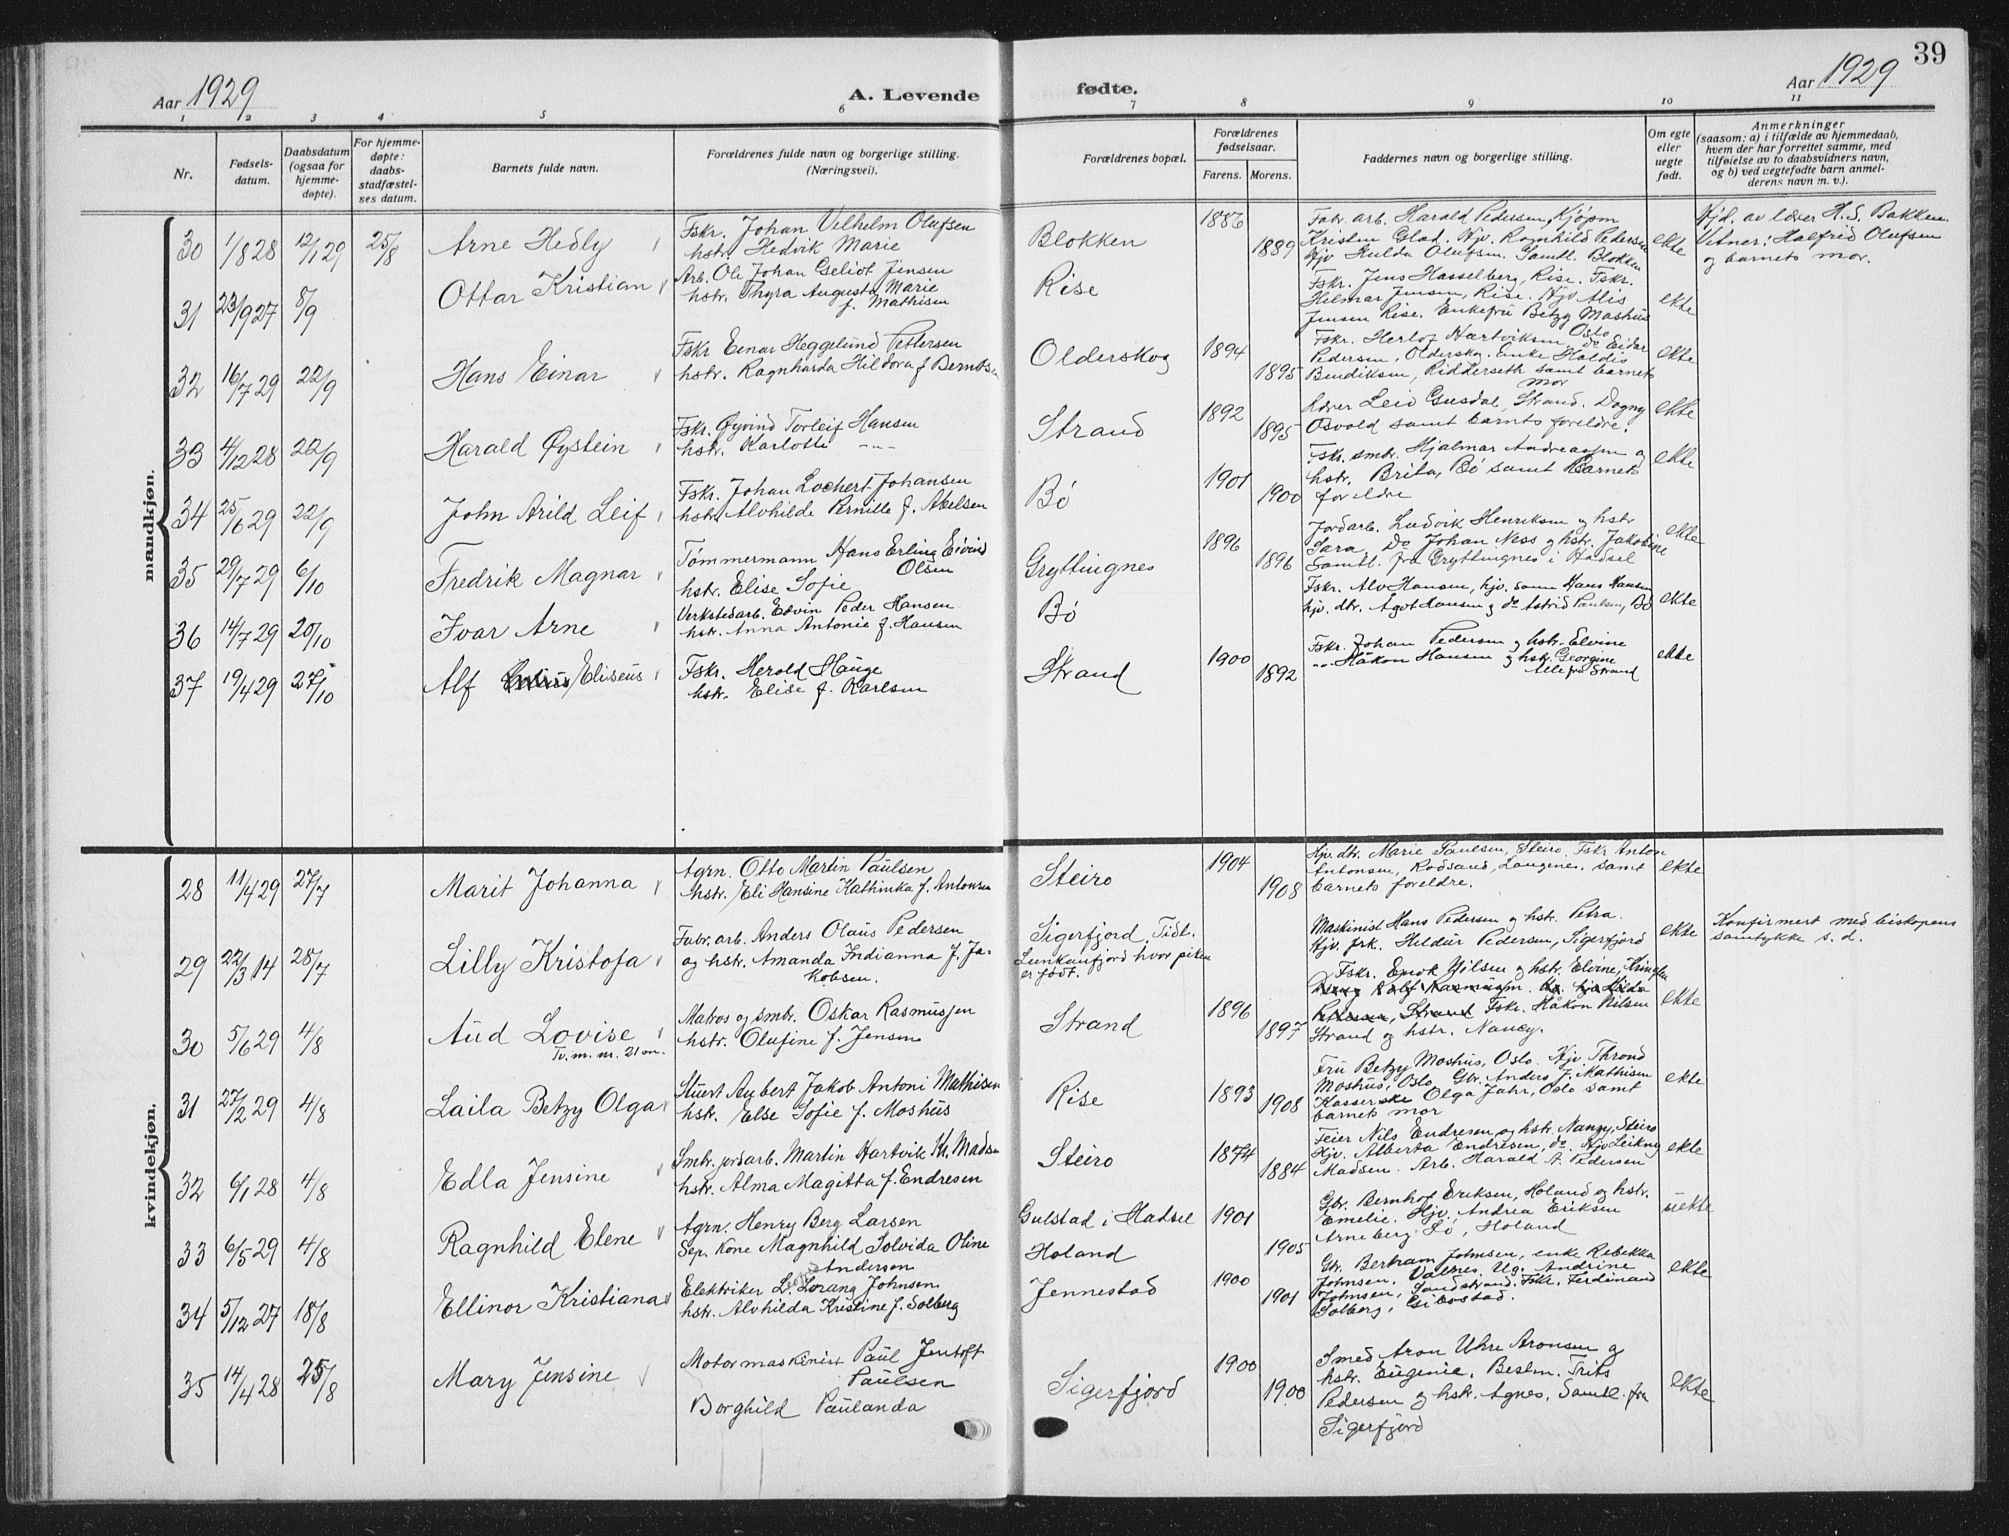 39
Aar 1929
A. Levende
fødte.
Aar 1929
1 2 3 4 5 6 7 8 9 10 11
Nr.
Fødsels-
datum.
Daabsdatum
(ogsaa for
hjemme-
døpte).
For hjemme-
døpte:
daabs-
stadfæstel-
ses datum.
Barnets fulde navn.
Forældrenes fulde navn og borgerlige stilling.
(Næringsvei).
Forældrenes bopæl.
Forældrenes
fødselsaar.
Farens. Morens.
Faddernes navn og borgerlige stilling.
Om egte
eller
uegte
født.
Anmerkninger
(saasom: a) i tilfælde av hjemmedaab,
hvem der har forrettet samme, med
tilføielse av to daabsvidners navn,
og b) ved uegtefødte barn anmel-
derens navn m. v.).
mandkjøn.
30 1/8 28 12/1 29 25/8 Arne Hedly
Fskr. Johan Vilhelm Olufsen
hstr. Hedvik Marie
Blokken 1886 1889
Fabr. arb. Harald Pedersen, Kjøpm
Kristen Glad. Hjv. Ragnhild Pedersen
Hjv Hulda Olufsen. Samtl. Blokken
ekte
Hjd. av lærer H. S. Bakken.
Vitner: Halfrid Olufsen
og barnets mor.
31 23/9 27 8/9 Ottar Kristian
Arb. Ole Johan Geliot Jensen
hstr. Thyra Augusta Marie
f. Mathisen
Rise
Fskr. Jens Hasselberg, Rise. Fskr.
Hilmar Jensen, Rise. Hjv Alis
Jensen Rise. Enkefru Betzy Moshus
Oslo
ekte
32 16/7 29 22/9 Hans Einar
Fskr Einar Heggelund Pettersen
hstr. Ragnharda Hildora f Berntsen
Olderskog 1894 1895
Fskr. Herlof Hartviksen, do Eidar
Pedersen, Olderskog. Enke Haldis
Bendiksen, Ridderseth samt barnets
mor
ekte
33 4/12 28 22/9 Harald Øystein
Fskr. Øyvind Torleif Hansen
hstr. Karlotte -"-
Strand 1892 1895
Lærer Leid Gusdal, Strand. Dagny
Osvold samt barnets foreldre.
ekte
34 25/6 29 22/9 John Arild Leif
Fskr. Johan Lochert Johansen
hstr. Alvhilde Pernille f. Akelsen
Bø 1901 1900
Fskr. smbr. Hjalmar Andreassen og
hstr. Brita, Bø samt Barnets
foreldre
ekte
35 29/7 29 6/10 Fredrik Magnar
Tømmermann Hans Erling Eivind
Olsen
hstr. Elise Sofie
Gryttingnes 1896 1896
Jordarb. Ludvik Henriksen og hstr
Sara. Do Johan Ness og hstr. Jakobine
Samtl. fra Gryttingnes i Hadsel
ekte
36 14/7 29 20/10 Ivar Arne
Verkstedarb. Edvin Peder Hansen
hstr. Anna Antonie f. Hansen
Bø
Fskr. Alv Hansen, hjv. sønn Hans Hansen
hjv. dtr. Agot Hansen og do Astrid Paulsen, Bø
ekte
37 19/4 29 27/10 Alf Eliseus
Fskr. Herold Hauge
hstr. Elise f. Karlsen
Strand 1900 1892
Fskr. Johan Pedersen og hstr. Elvine
-"- Håkon Hansen og hstr. Georgine
Alle fra Strand
ekte
kvindekjøn.
28 11/4 29 27/7 Marit Johanna
Agrn. Otto Martin Paulsen
hstr. Eli Hansine Kathinka f. Antonsen
Steiro 1904 1908
Hjv. dtr. Marie Paulsen, Steiro. Fskr Anton
Antonsen, Rødsand, Langenes. samt
barnets foreldre.
ekte
29 22/3 14 28/7 Lilly Kristofa
Fabr. arb. Anders Olaus Pedersen
og hstr. Amanda Indianna f. Ja-
kobsen.
Sigerfjord. Tidl.
Lunkanfjord hvor piken
er født.
Maskinist Hans Pedersen og hstr. Petra.
Hjv. frk. Hildur Pedersen, Sigerfjord
ekte
Konfirmert med biskopens
samtykke s. d.
30 5/6 29 4/8 Aud Lovise
Tv. m. m. 21 on.
Matros og smbr. Oskar Rasmussen
hstr. Olufine f. Jensen
Strand 1896 1897
Fskr. Enok Nilsen og hstr. Elvine, Kringlen
Fskr. Håkon Nilsen
Strand og hstr. Nancy.
ekte
31 27/2 29 4/8 Laila Betzy Olga
Stuert Aubert Jakob Antoni Mathisen
hstr. Else Sofie f. Moshus
Rise 1893 1908
Fru Betzy Moshus, Oslo. Hjv Thrond
Moshus, Oslo Gbr. Anders J. Mathisen
Kasserske Olga Jahr, Oslo samt
barnets mor
ekte
32 6/1 28 4/8 Edla Jensine
Smbr. jordarb. Martin Hartvik Kr. Madsen
hstr. Alma Magitta f. Endresen
Steiro 1874 1884
Feier Nils Endresen og hstr. Nanzy, Steiro
Hjv. Alberta Endresen, do. Hjv Leikny
Madsen. Arb. Harald A. Pedersen
ekte
33 6/5 29 4/8 Ragnhild Elene
Agrn. Henry Berg Larsen
Sep. kone Magnhild Solvida Oline
Andersen
Gulstad i Hadsel 1901
Holand 1905
Gbr. Bernhof Eriksen, Holand og hstr.
Emelie. Hjv. Andrea Eriksen
Arneberg Bø, Holand
uekte
34 5/12 27 18/8 Ellinor Kristiana
Elektriker L. Lorang Johnsen
hstr. Alvhilda Kristine f. Solberg
Jennestad 1900 1901
Gbr. Bertram Johnsen, enke Rebekka
Johnsen, Valnes. Ug. Andrine
Johnsen, Sandstrand. Fskr. Ferdinand
Solberg, Gibostad.
ekte
35 14/4 28 25/8 Mary Jensine
Motormaskinist Paul Jentoft
Paulsen
Borghild Paulanda
Sigerfjord 1900 1900
Smed Aron Uhre Aronsen og
hstr. Eugenie. Bestm. Frits
Pedersen og hstr. Agnes. Samtl. fra
Sigerfjord
ekte